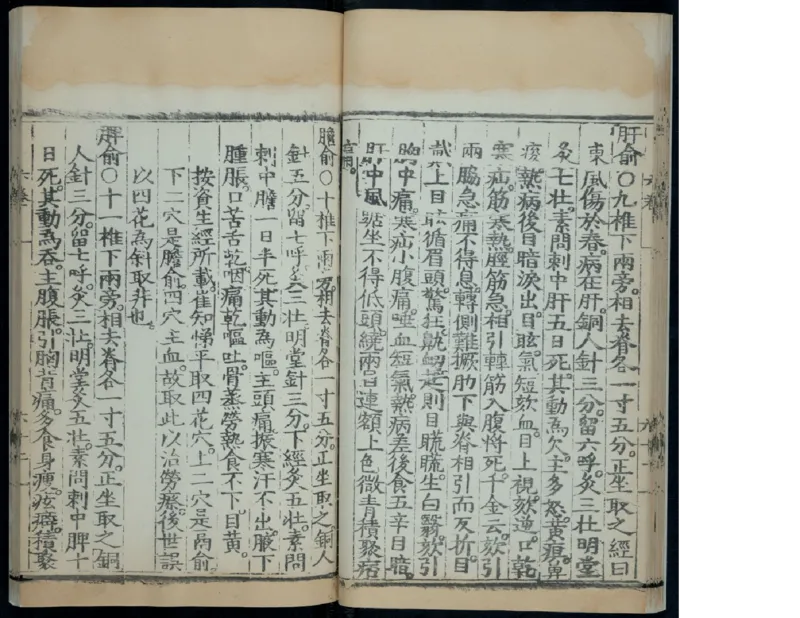 肝俞〇九椎下兩旁。相去脊各一寸五分。正坐取之經曰
東風傷於春。病在肝。銅人針三分。留六呼。灸三壯明堂
灸七壯素問刺中肝五日死。其動為欠。主多怒。黃疸。鼻
痠。熱病後目暗淚出。目眩。氣短欬血。目上視。欬逆。口乾
寒疝。筋寒熱。脛筋急。相引轉筋入腹將死。千金云。欬引
兩脇急痛不得息。轉側難。撅肋下與脊相引而反折。目
戴上目眩循眉頭。驚狂。鼽衂起則目䀮䀮。生白翳。欬引
胸中痛。寒疝小腹痛。唾血短氣。熱病差後食五辛目暗。
肝中風踞坐不得低頭。繞兩目連額上色微青積聚痞
痛。
膽俞〇十椎下兩旁。相去脊各一寸五分。正坐取之銅人
針五分。留七呼灸三壯明堂針三分。下經灸五壯。素問
刺中膽一日半死其動為嘔。主頭痛振寒汗不出。腋下
腫脹。口苦舌乾。咽痛乾嘔吐。骨蒸勞熱食不下。目黃。
按資生經所載。崔知悌平取四花穴。上二穴是膈俞。
下二穴是膽俞。四穴主血。故取此以治勞瘵。後世誤
以四花為斜取非也。
脾俞〇十一椎下兩旁。相去脊各一寸五分。正坐取之銅
人針三分。留七呼。灸三壯。明堂灸五壯。素問刺中脾十
日死。其動為吞。主腹脹。引胸背痛。多食身瘦。痃癖。積聚